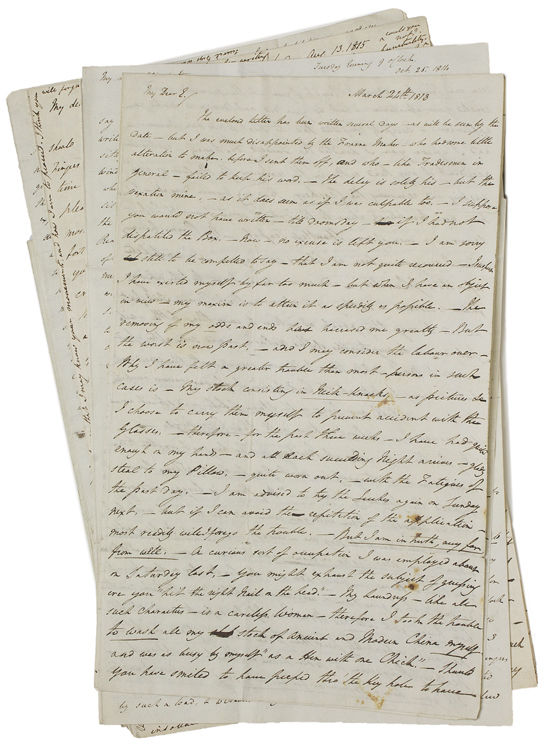 Aug. 13. 1815
Tuesday Evening 9 o'clock
Oct. 25. 1814
My Dear E/
March 24th 1813
The enclosed letter has been written several days – as will be seen by the
date – but I was much disappointed by the Frame Maker – who had some little
alteration to make, before I sent them off, and who – like Tradesmen in
general – failed to keep his word. – The delay is solely his – but the
vexation mine. – as it does seem as if I was culpable too. – I suppose
you would not have written – till doomsday – if I had not
dispatched the Box. – Now – no excuse is left you. – I am sorry
still to be compelled to say – that I am not quite recovered –
I have exerted myself by far too much – but when I have an object
in view – my maxim is to attain it as speedily as possible. – The
removing of my odds and ends harrassed me greatly – But
the worst is now past. – and I may consider the labour over –
Why I have felt a greater trouble than most persons in such
case is – My stock consisting in Nick-knacks – as pictures &c
I choose to carry them myself to prevent accident with the
Glasses. – therefore – for the past three weeks – I have had quite
enough on my hands – and as each succeeding Night arrives – gladly
steal to my Pillow. – quite worn out. – with the Fatigues of
the past day. – I am advised to try the Leeches again on Sunday
next. – but if I can avoid the repetition of the application –
most readily will forego the trouble. – But I am in truth, very far
from well. – A curious sort of occupation I was employed about
on Saturday last. – You might exhaust the subject of guessing
ere you hit the right Nail on the head. – My Laundress – like all
such characters – is a careless Woman – therefore I took the trouble
to wash all my stock of Ancient and Modern China myself
and was as busy by myself "as a Hen with one Chick" – Should
you have smiled to have peeped thro' the key hole to have
by such a load, &